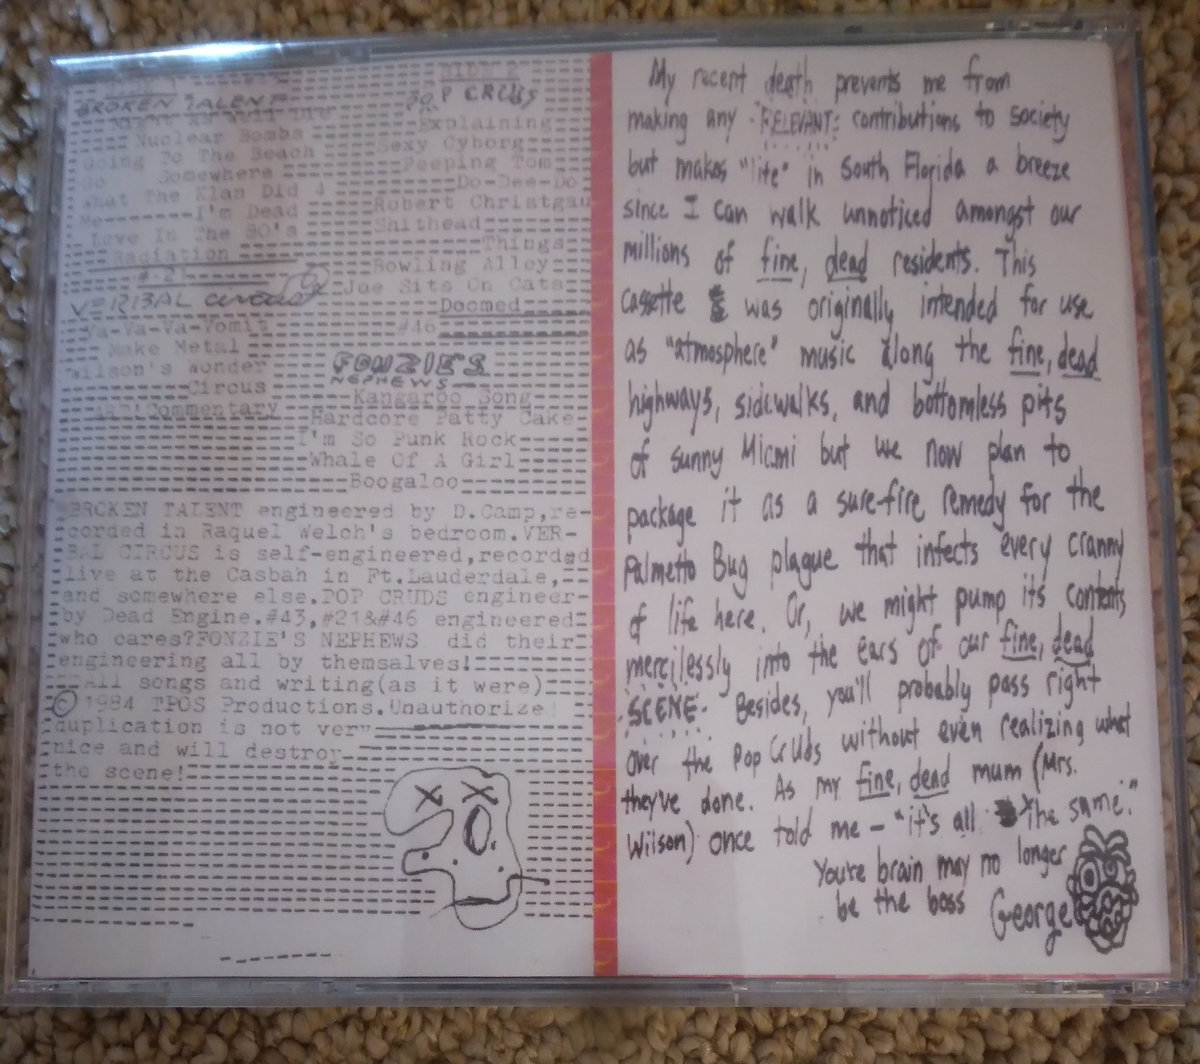 BROKEN TALENT
Nuclear Bombs
Going To The Beach
Go Somewhere
What The Klan Did 4
Me I'm Dead
Love In The 80's
Radiation
#21
VERBAL CIRCUS
Va-Va-Va-Vomit
Make Metal
Wilson's Wonder
Circus
ART!Commentary
SIDE 2
POP CRUDS
Explaining
Sexy Cyborg
Peeping Tom
Do-Dee-Do
Robert Christgau
Shithead
Things
Bowling Alley
Joe Sits On Cats
Doomed
#46
FONZIE'S
NEPHEWS
Kangaroo Song
Hardcore Patty Cake
I'm So Punk Rock
Whale Of A Girl
Boogaloo
BROKEN TALENT engineered by D.Camp,re-
corded in Raquel Welch's bedroom.VER-
BAL CIRCUS is self-engineered,recorded
live at the Casbah in Ft.Lauderdale,
and somewhere else.POP CRUDS engineer-
by Dead Engine.#43,#21&#46 engineered
who cares?FONZIE'S NEPHEWS did their
engineering all by themsalves!
All songs and writing(as it were)
© 1984 TPOS Productions.Unauthorize
duplication is not very
nice and will destroy
the scene!
My recent death prevents me from
making any RELEVANT contributions to society
but makes "life" in South Florida a breeze
since I can walk unnoticed amongst our
millions of fine, dead residents. This
cassette was originally intended for use
as "atmosphere" music along the fine, dead
highways, sidewalks, and bottomless pits
of sunny Miami but we now plan to
package it as a sure-fire remedy for the
Palmetto Bug plague that infects every cranny
of life here. Or, we might pump its contents
mercilessly into the ears of our fine, dead
SCENE. Besides, you'll probably pass right
over the Pop Cruds without even realizing what
they've done. As my fine, dead mum (Mrs.
Wilson) once told me - "it's all the same."
You're brain may no longer
be the boss
George